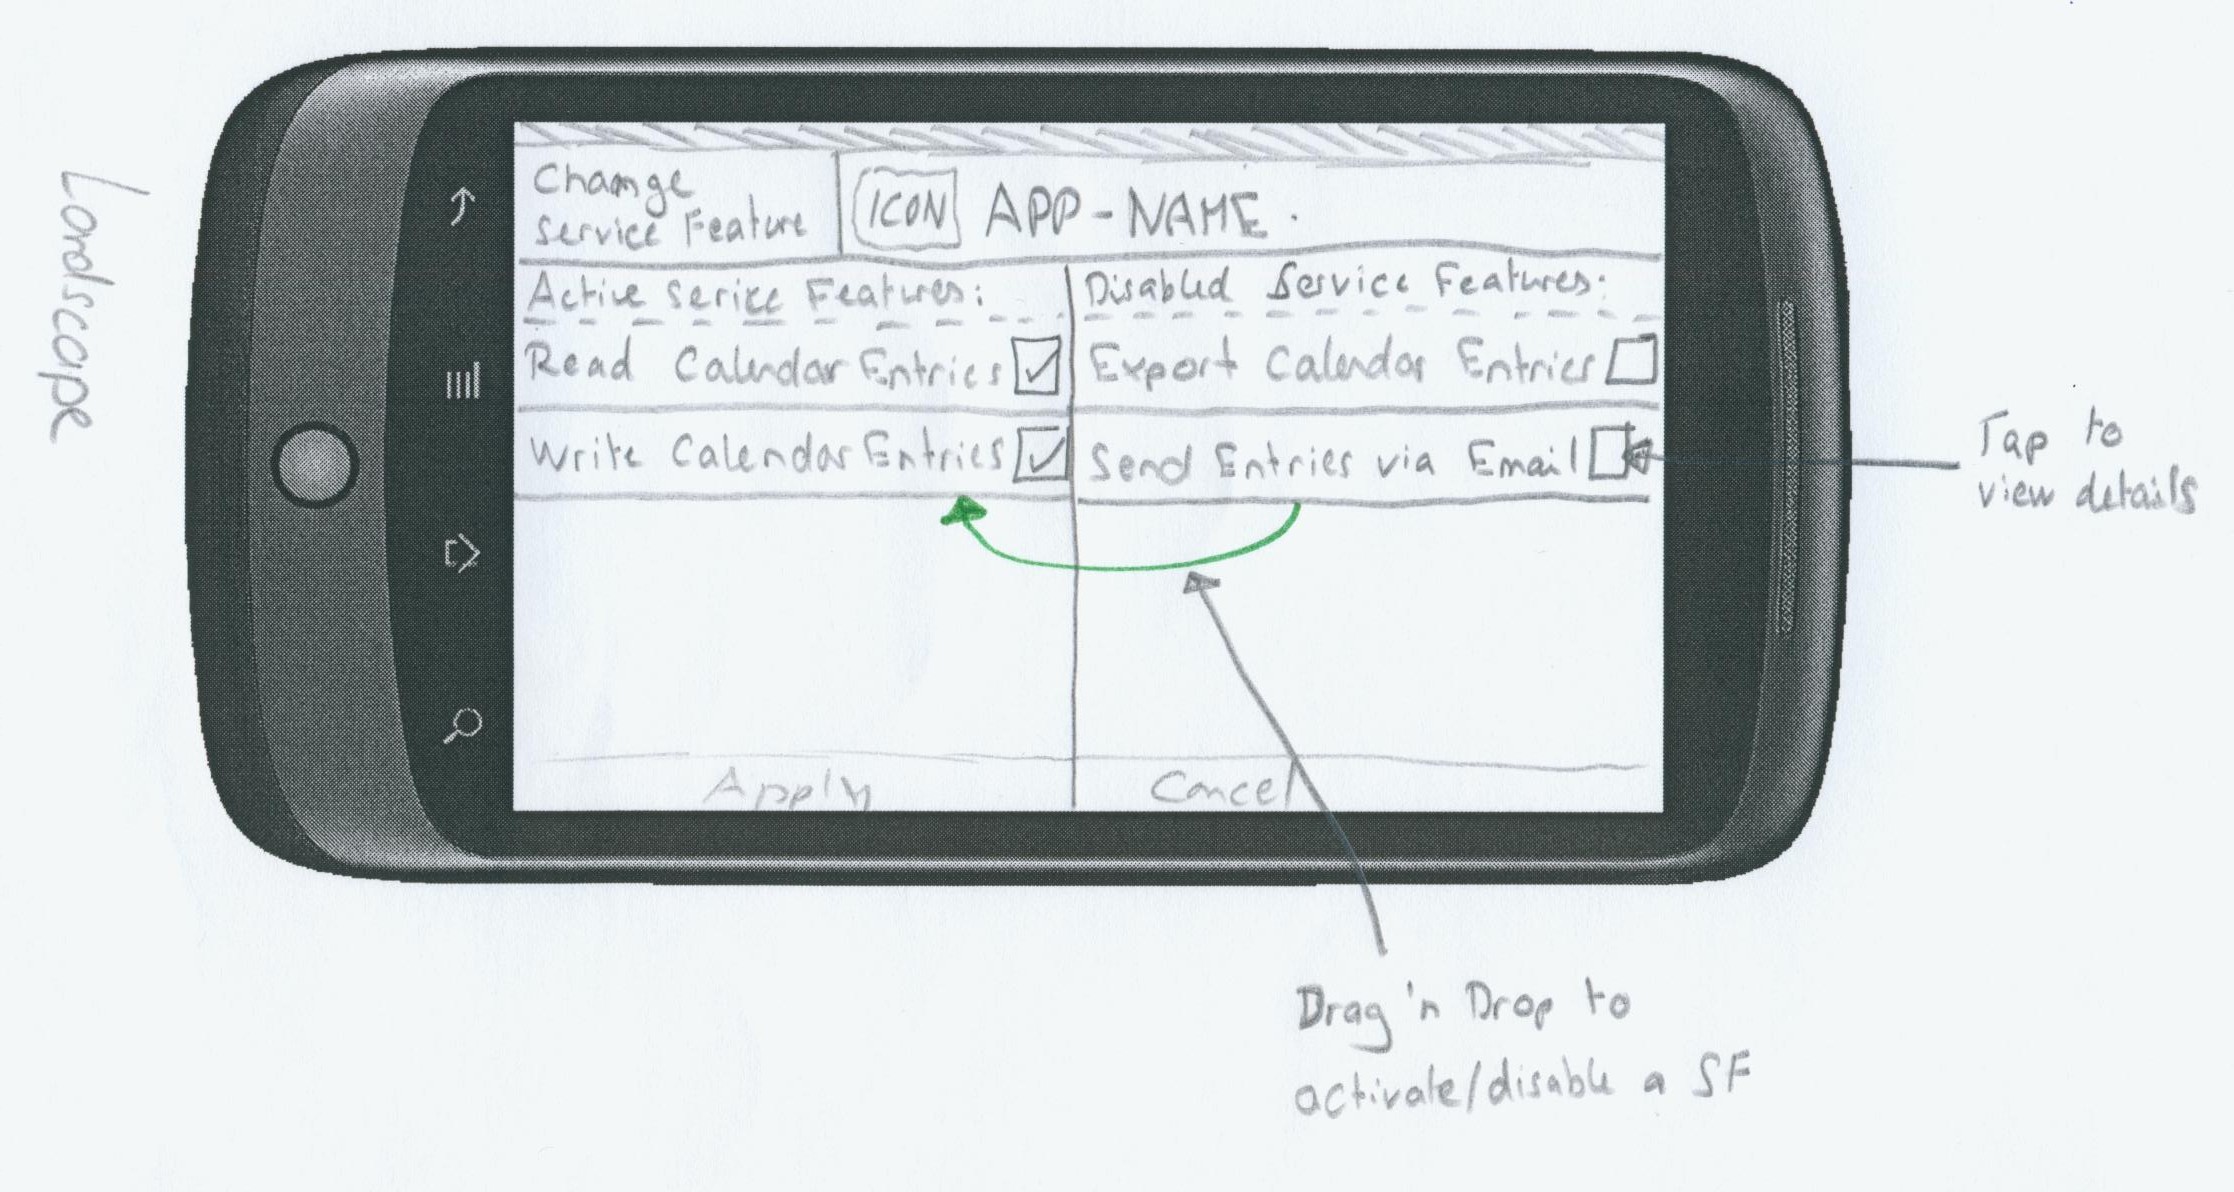 Landscape
Change
Service Feature
ICON APP-NAME.
Active Serice Features:
Read Calendar Entries
Write Calendar Entries
Disabled Service Features:
Export Calendar Entries
Send Entries via Email
Apply
Cancel
Tap to
view details
Drag 'n Drop to
activate/disable a SF